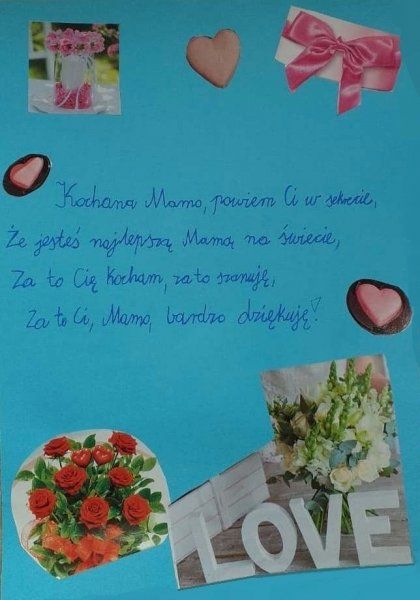 Kochana Mamo, powiem Ci w sekrecie,
Że jesteś najlepszą Mamą na świecie,
Za to Cię kocham, za to szanuję,
Za to Ci, Mamo, bardzo dziękuję!
LOVE